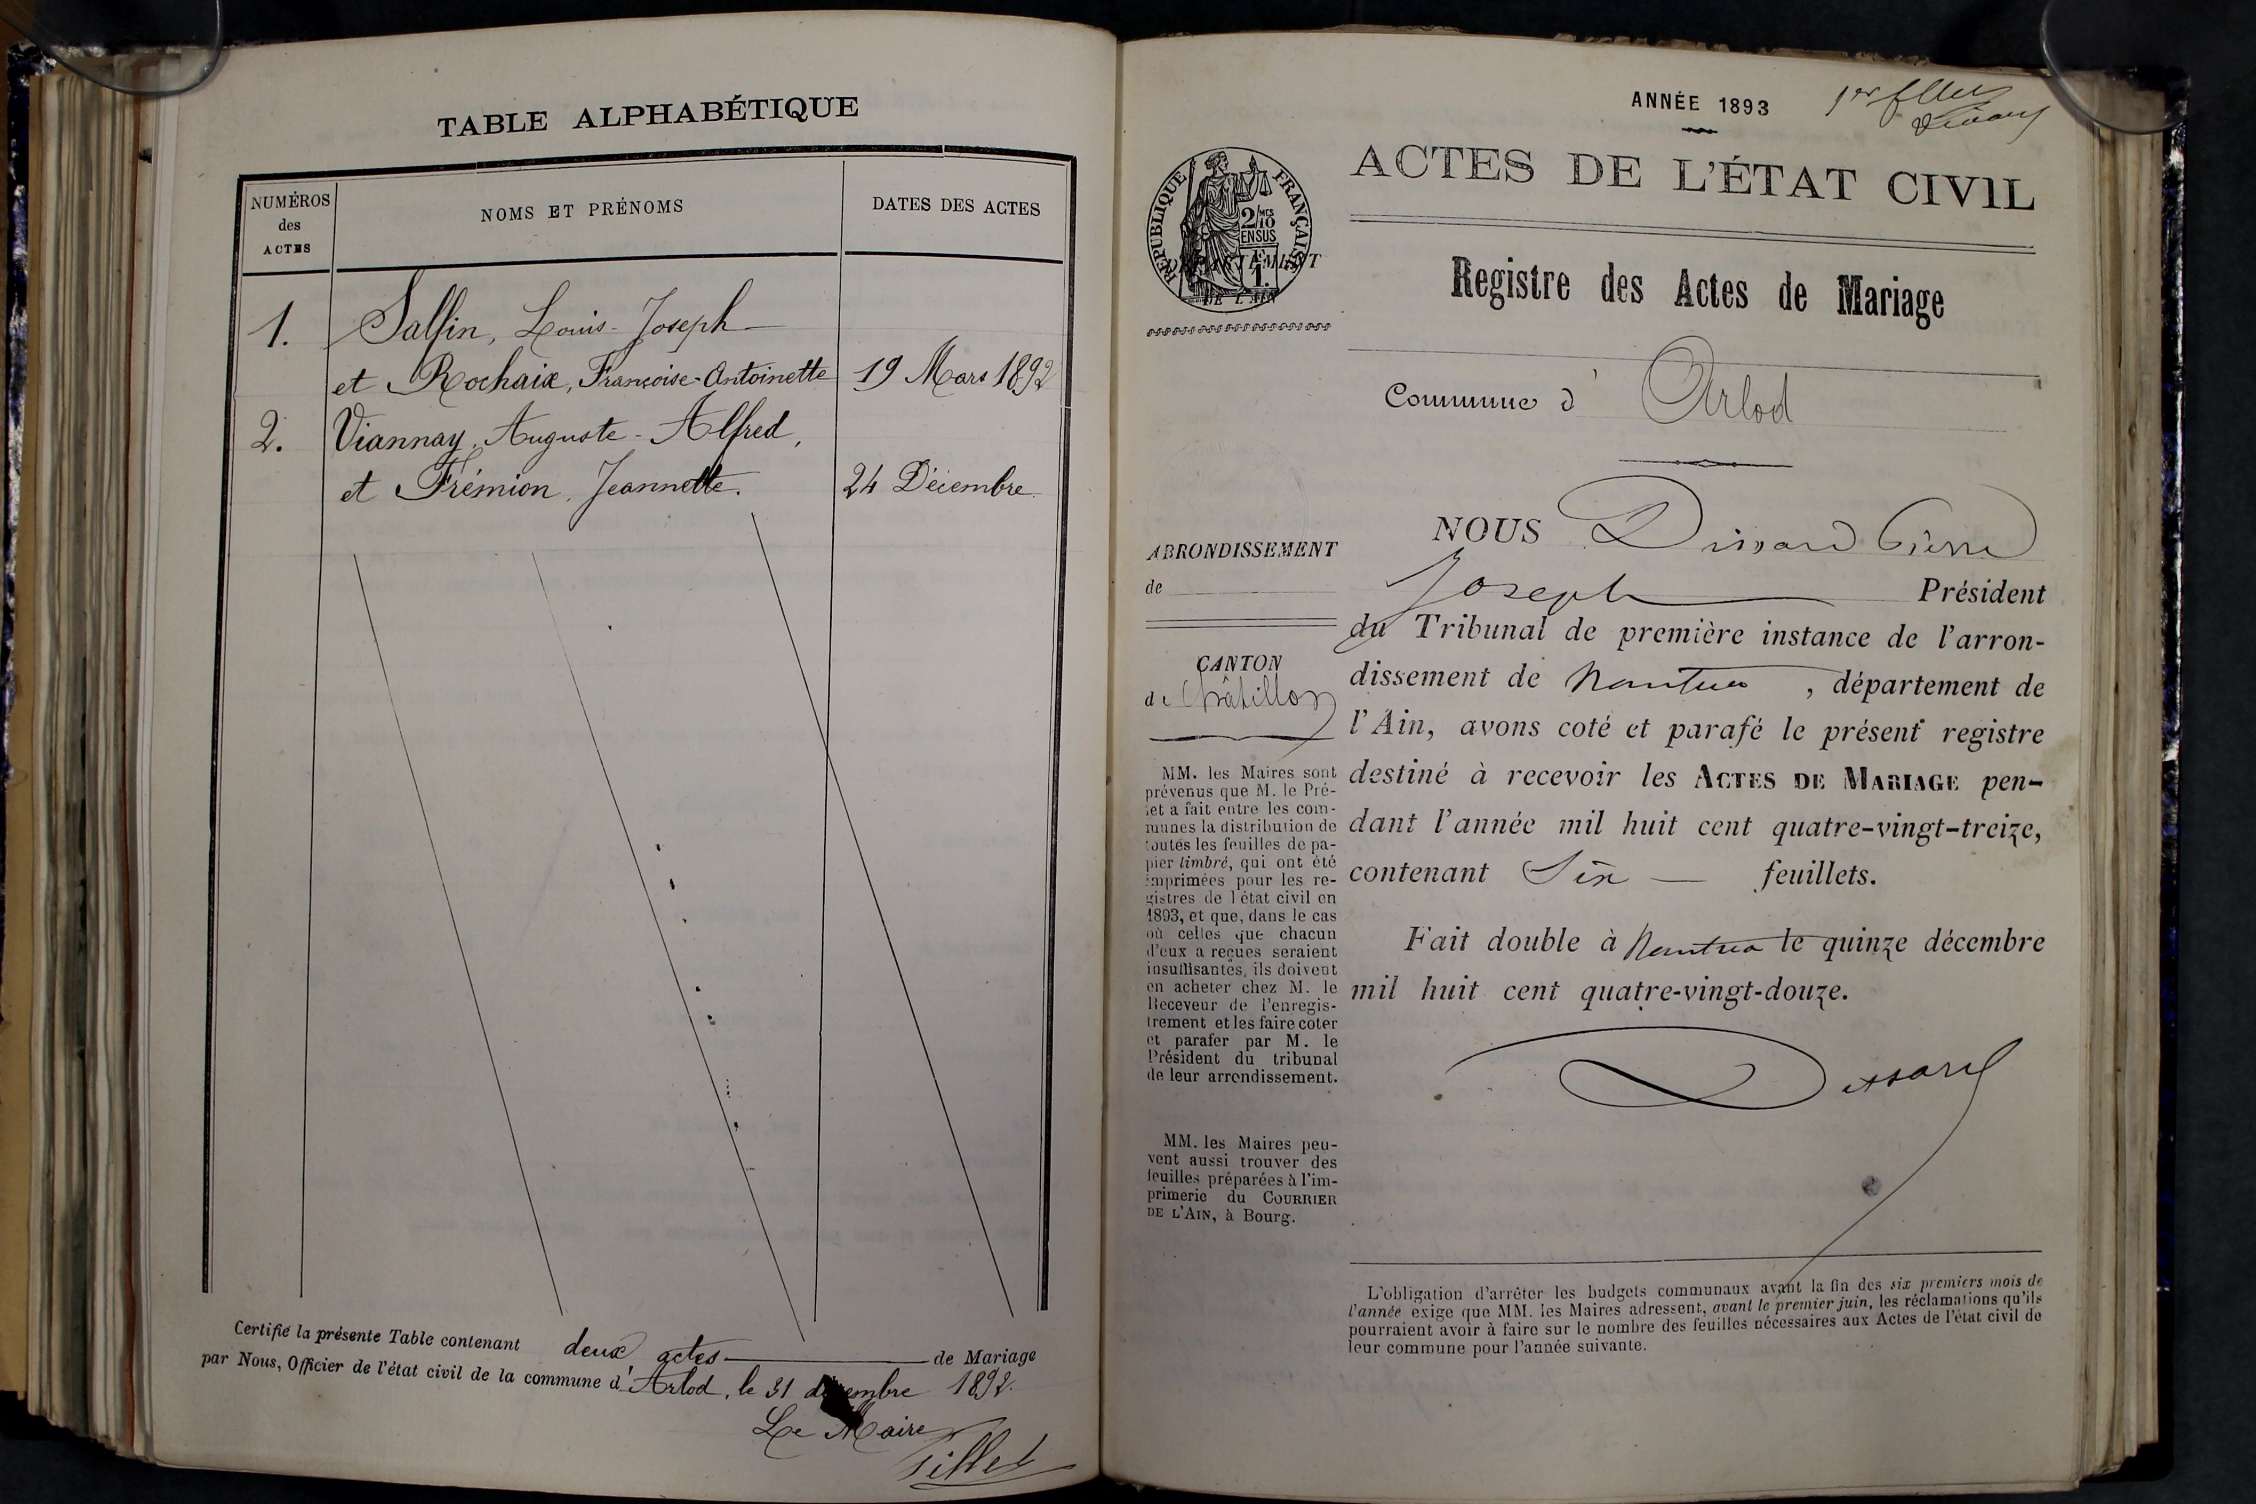 TABLE ALPHABÉTIQUE
NUMÉROS
des
ACTES
NOMS ET PRÉNOMS
DATES DES ACTES
1. Salfin, Louis-Joseph
et Rochaix, Françoise-Antoinette 19 Mars 1892
2. Viannay, Auguste-Alfred,
et Frémion, Jeannette. 24 Décembre
Certifié la présente Table contenant deux actes de Mariage
par Nous, Officier de l'état civil de la commune d'Arlod, le 31 décembre 1892.
Le Maire
Pillet
ANNÉE 1893
1er
ACTES DE L'ÉTAT CIVIL
RÉPUBLIQUE FRANÇAISE
2/10
MES
EN SUS
1.
DÉPARTEMENT
DE L'AIN
Registre des Actes de Mariage
Commune d'Arlod
ARRONDISSEMENT
de
CANTON
de Châtillon
MM. les Maires sont
prévenus que M. le Pré-
fet a fait entre les com-
munes la distribution de
toutes les feuilles de pa-
pier timbré, qui ont été
imprimées pour les re-
gistres de l'état civil en
1893, et que, dans le cas
où celles que chacun
d'eux a reçues seraient
insuffisantes, ils doivent
en acheter chez M. le
Receveur de l'enregis-
trement et les faire coter
et parafer par M. le
Président du tribunal
de leur arrondissement.
MM. les Maires peu-
vent aussi trouver des
feuilles préparées à l'im-
primerie du COURRIER
DE L'AIN, à Bourg.
NOUS Pierre
Joseph Président
du Tribunal de première instance de l'arron-
dissement de Nantua, département de
l'Ain, avons coté et parafé le présent registre
destiné à recevoir les ACTES DE MARIAGE pen-
dant l'année mil huit cent quatre-vingt-treize,
contenant Six feuillets.
Fait double à Nantua le quinze décembre
mil huit cent quatre-vingt-douze.
L'obligation d'arrêter les budgets communaux avant la fin des six premiers mois de
l'année exige que MM. les Maires adressent, avant le premier juin, les réclamations qu'ils
pourraient avoir à faire sur le nombre des feuilles nécessaires aux Actes de l'état civil de
leur commune pour l'année suivante.